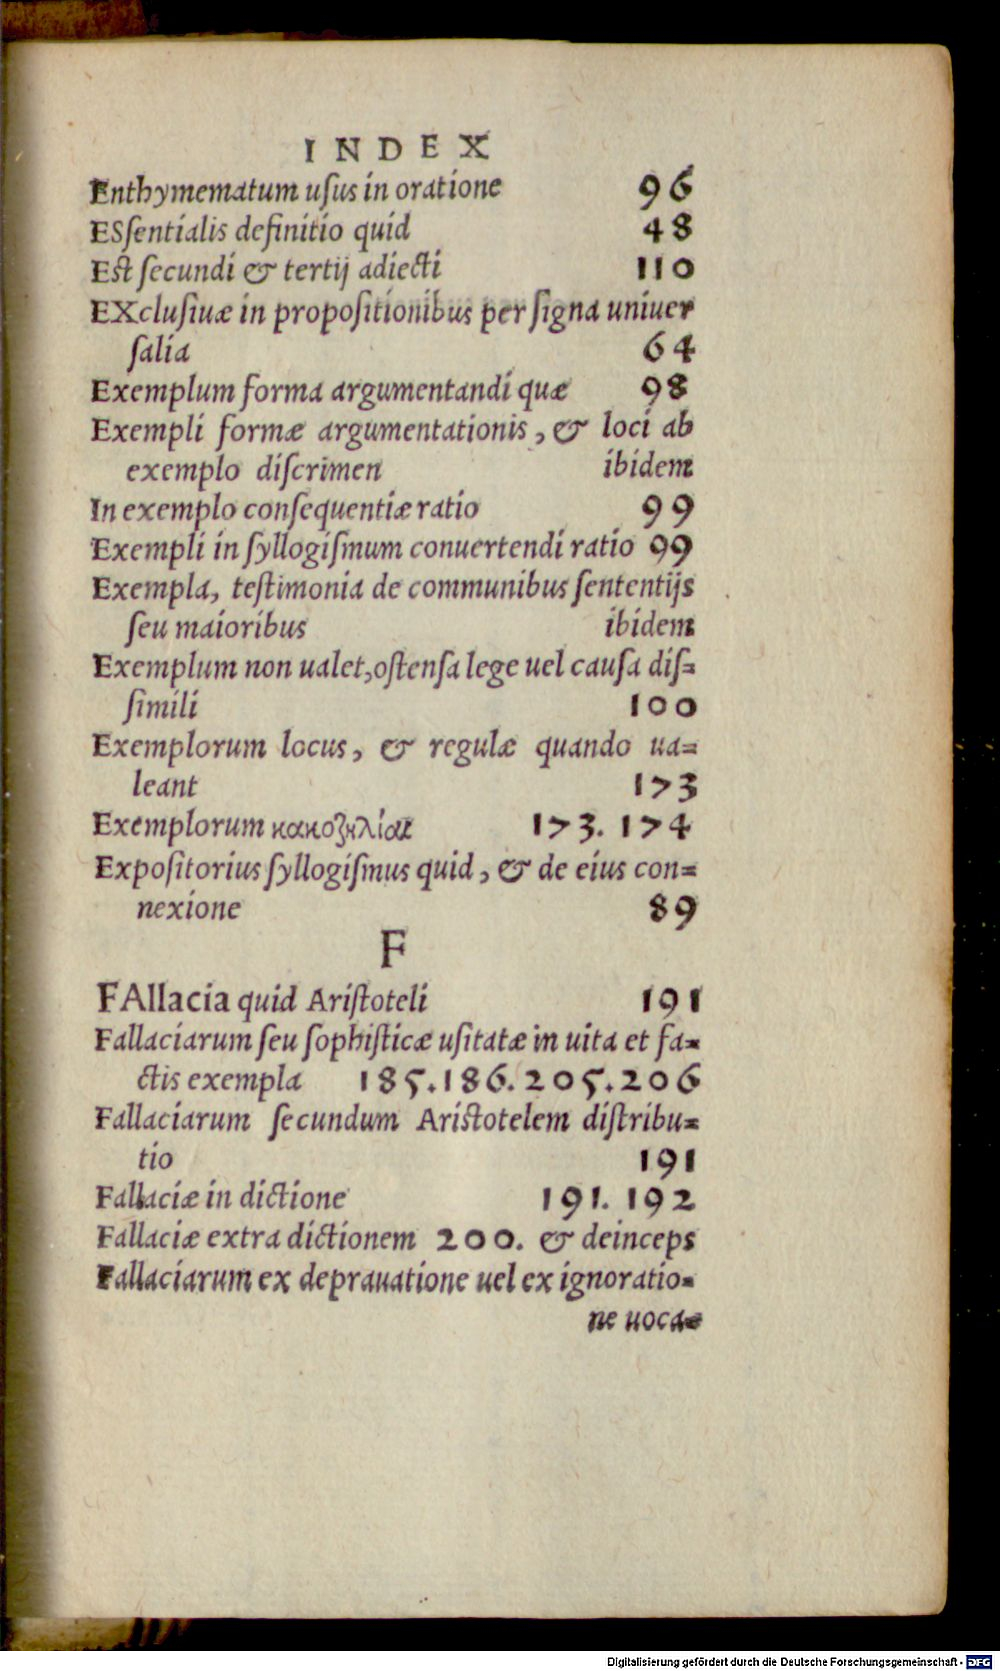 INDEX
Enthymematum uſus in oratione 96
ESſentialis definitio quid 48
Eſt ſecundi & tertij adiecti 110
EXcluſiuæ in propoſitionibus per ſigna uniuer
ſalia 64
Exemplum forma argumentandi quæ 98
Exempli formæ argumentationis, & loci ab
exemplo diſcrimen ibidem
In exemplo conſequentiæ ratio 99
Exempli in ſyllogiſmum conuertendi ratio 99
Exempla, teſtimonia de communibus ſententijs
ſeu maioribus ibidem
Exemplum non ualet, oſtenſa lege uel cauſa diſ-
ſimili 100
Exemplorum locus, & regulæ quando ua-
leant 173
Exemplorum κακοζηλίαι 173. 174
Expoſitorius ſyllogiſmus quid, & de eius con-
nexione 89
F
FAllacia quid Ariſtoteli 191
Fallaciarum ſeu ſophiſticæ uſitatæ in uita et fa-
ctis exempla 185. 186. 205. 206
Fallaciarum ſecundum Ariſtotelem diſtribu-
tio 191
Fallaciæ in dictione 191. 192
Fallaciæ extra dictionem 200. & deinceps
Fallaciarum ex deprauatione uel ex ignoratio-
ne uoca-
Digitalisierung gefördert durch die Deutsche Forschungsgemeinschaft - DFG